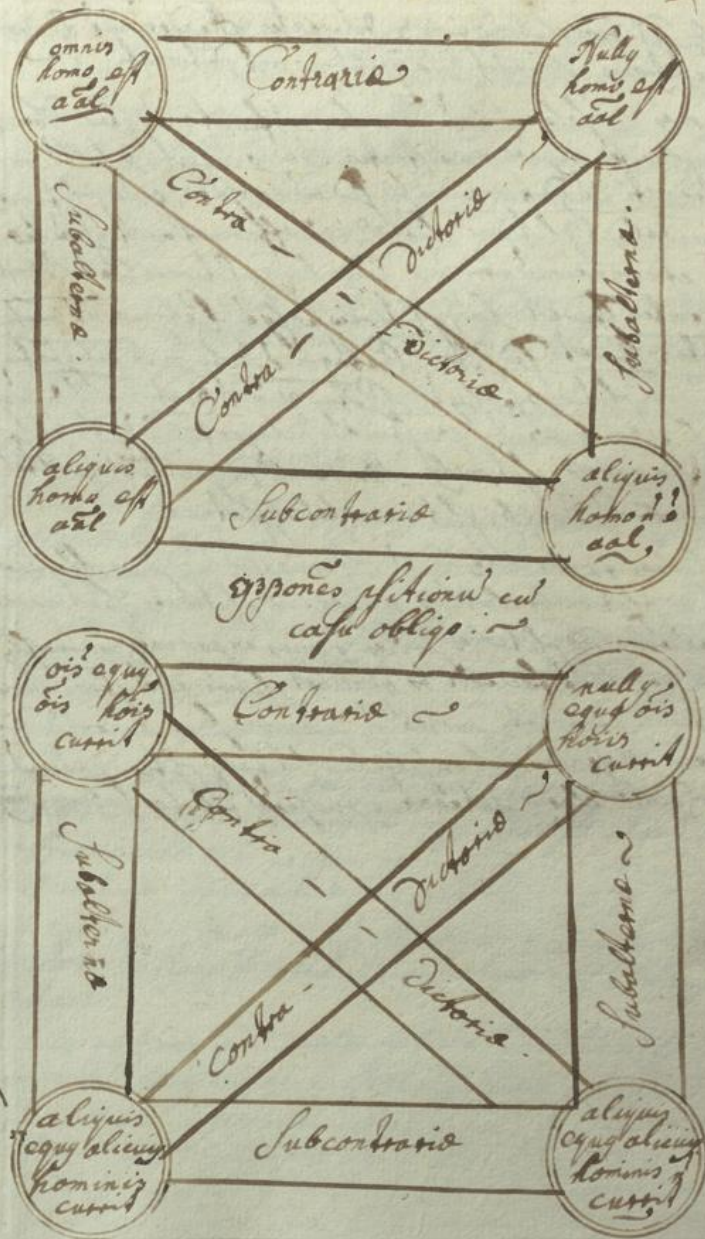 omnis
homo est
aāl
Contrariæ
Nullꝯ
homo est
aāl
Subalternæ.
Contra -
- dictoriæ.
Contra -
- dictoriæ
Subalternæ.
aliquis
homo est
aāl
Subcontrariæ
aliquis
homo n̄ ē
aāl
casu obliqo:
oīs equꝯ
oīs hoīs
currit
Contrariæ
nullꝯ
equꝯ oīs
hoīs
currit
Subalternæ
Contra -
- dictoriæ.
Contra -
dictoriæ
Subalternæ
aliquis
equꝯ alicuiꝯ
hominis
currit
Subcontrariæ
aliquis
equꝯ alicuiꝯ
hominis n̄
currit